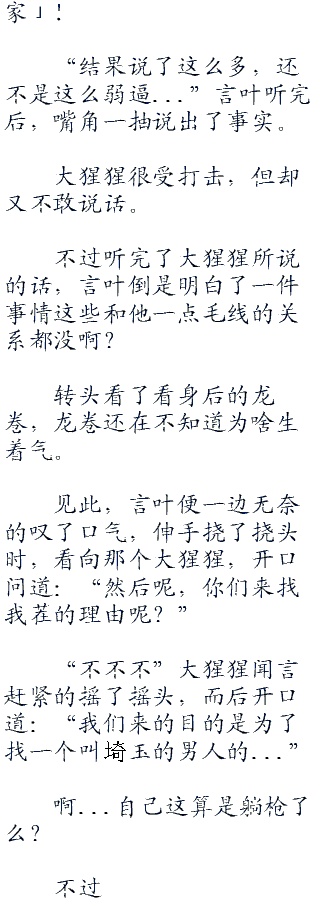 家」！
“结果说了这么多，还
不是这么弱逼...”言叶听完
后，嘴角一抽说出了事实。
大猩猩很受打击，但却
又不敢说话。
不过听完了大猩猩所说
的话，言叶倒是明白了一件
事情这些和他一点毛线的关
系都没啊？
转头看了看身后的龙
卷，龙卷还在不知道为啥生
着气。
见此，言叶便一边无奈
的叹了口气，伸手挠了挠头
时，看向那个大猩猩，开口
问道：“然后呢，你们来找
我茬的理由呢？”
“不不不”大猩猩闻言
赶紧的摇了摇头，而后开口
道：“我们来的目的是为了
找一个叫埼玉的男人的...”
啊...自己这算是躺枪了
么？
不过